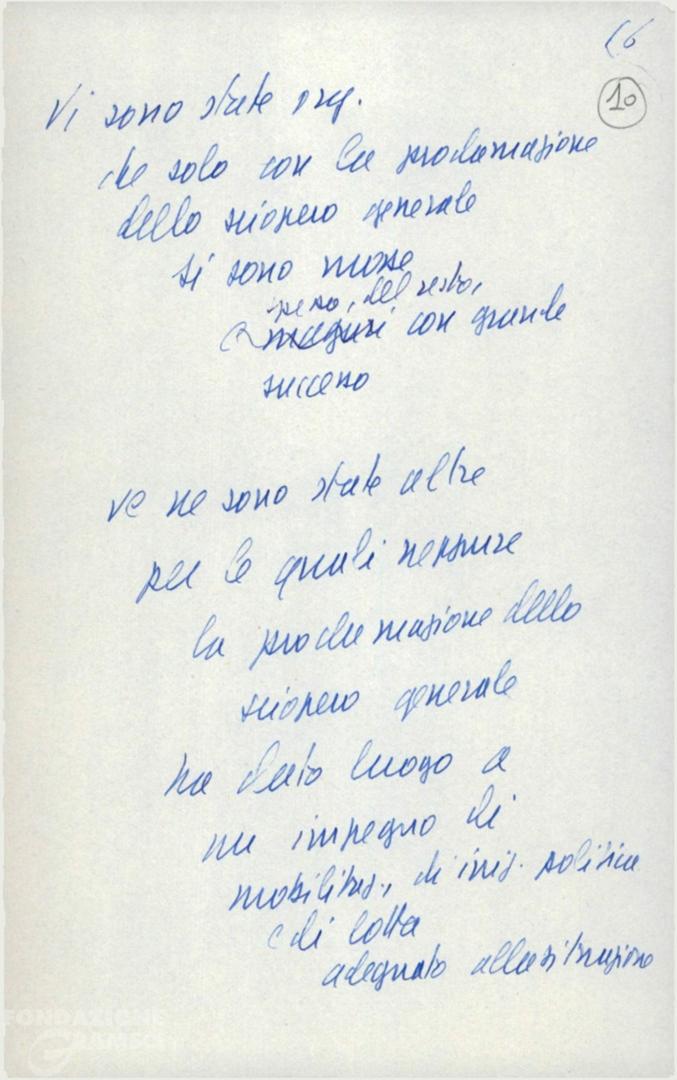 16
10
Vi sono state org.
che solo con la proclamazione
dello sciopero generale
si sono mosse
spesso, del resto,
e magari con grande
successo
ve ne sono state altre
per le quali neppure
la proclamazione dello
sciopero generale
ha dato luogo a
un impegno di
mobilitaz., di iniz. politica
e di lotta
adeguato alla situazione
FONDAZIONE
GRAMSCI